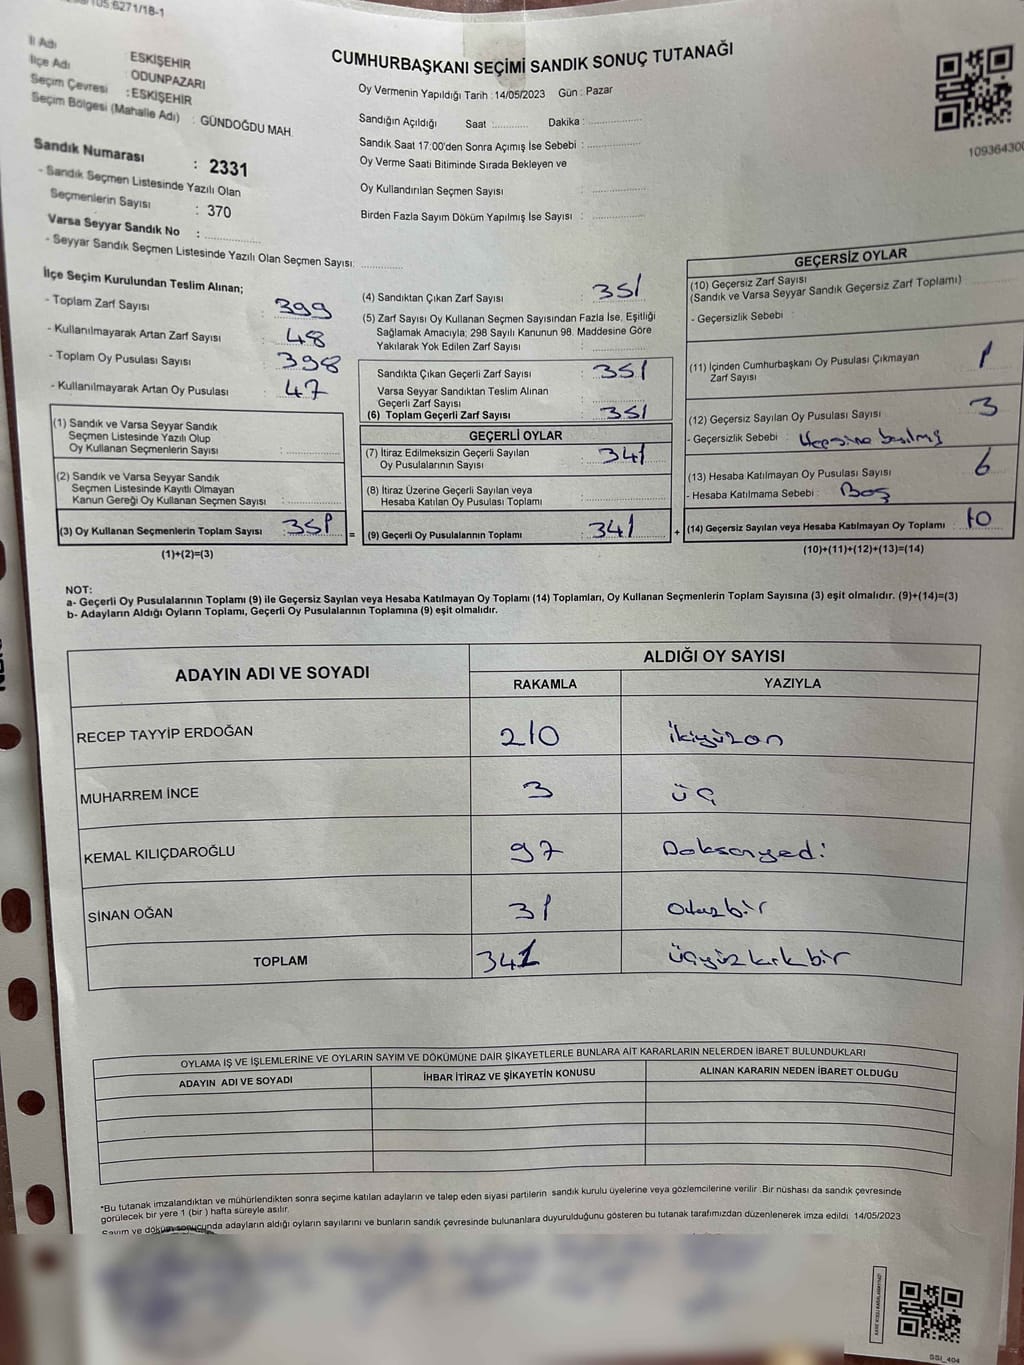 6271/18-1
İl Adı ESKİŞEHİR
İlçe Adı : ODUNPAZARI
Seçim Çevresi : ESKİŞEHİR
Seçim Bölgesi (Mahalle Adı) : GÜNDOĞDU MAH.
Sandık Numarası : 2331
- Sandık Seçmen Listesinde Yazılı Olan
Seçmenlerin Sayısı : 370
Varsa Seyyar Sandık No :
- Seyyar Sandık Seçmen Listesinde Yazılı Olan Seçmen Sayısı:
CUMHURBAŞKANI SEÇİMİ SANDIK SONUÇ TUTANAĞI
Oy Vermenin Yapıldığı Tarih : 14/05/2023 Gün : Pazar
Sandığın Açıldığı Saat : Dakika :
Sandık Saat 17:00'den Sonra Açımış İse Sebebi :
Oy Verme Saati Bitiminde Sırada Bekleyen ve
Oy Kullandırılan Seçmen Sayısı :
Birden Fazla Sayım Döküm Yapılmış İse Sayısı :
10936430
İlçe Seçim Kurulundan Teslim Alınan;
- Toplam Zarf Sayısı : 399
- Kullanılmayarak Artan Zarf Sayısı : 48
- Toplam Oy Pusulası Sayısı : 398
- Kullanılmayarak Artan Oy Pusulası : 47
(1) Sandık ve Varsa Seyyar Sandık
Seçmen Listesinde Yazılı Olup
Oy Kullanan Seçmenlerin Sayısı :
(2) Sandık ve Varsa Seyyar Sandık
Seçmen Listesinde Kayıtlı Olmayan
Kanun Gereği Oy Kullanan Seçmen Sayısı :
(3) Oy Kullanan Seçmenlerin Toplam Sayısı : 351 =
(1)+(2)=(3)
(4) Sandıktan Çıkan Zarf Sayısı : 351
(5) Zarf Sayısı Oy Kullanan Seçmen Sayısından Fazla İse, Eşitliği
Sağlamak Amacıyla; 298 Sayılı Kanunun 98. Maddesine Göre
Yakılarak Yok Edilen Zarf Sayısı :
Sandıkta Çıkan Geçerli Zarf Sayısı : 351
Varsa Seyyar Sandıktan Teslim Alınan
Geçerli Zarf Sayısı :
(6) Toplam Geçerli Zarf Sayısı : 351
GEÇERLİ OYLAR
(7) İtiraz Edilmeksizin Geçerli Sayılan
Oy Pusulalarının Sayısı : 341
(8) İtiraz Üzerine Geçerli Sayılan veya
Hesaba Katılan Oy Pusulası Toplamı :
(9) Geçerli Oy Pusulalarının Toplamı : 341 +
GEÇERSİZ OYLAR
(10) Geçersiz Zarf Sayısı :
(Sandık ve Varsa Seyyar Sandık Geçersiz Zarf Toplamı)
- Geçersizlik Sebebi :
(11) İçinden Cumhurbaşkanı Oy Pusulası Çıkmayan
Zarf Sayısı : 1
(12) Geçersiz Sayılan Oy Pusulası Sayısı : 3
- Geçersizlik Sebebi : Hepsine basılmış
(13) Hesaba Katılmayan Oy Pusulası Sayısı : 6
- Hesaba Katılmama Sebebi : Boş
(14) Geçersiz Sayılan veya Hesaba Katılmayan Oy Toplamı : 10
(10)+(11)+(12)+(13)=(14)
NOT:
a- Geçerli Oy Pusulalarının Toplamı (9) ile Geçersiz Sayılan veya Hesaba Katılmayan Oy Toplamı (14) Toplamları, Oy Kullanan Seçmenlerin Toplam Sayısına (3) eşit olmalıdır. (9)+(14)=(3)
b- Adayların Aldığı Oyların Toplamı, Geçerli Oy Pusulalarının Toplamına (9) eşit olmalıdır.
ADAYIN ADI VE SOYADI ALDIĞI OY SAYISI
RAKAMLA YAZIYLA
RECEP TAYYİP ERDOĞAN 210 ikiyüzon
MUHARREM İNCE 3 üç
KEMAL KILIÇDAROĞLU 97 Doksanyedi
SİNAN OĞAN 31 Otuzbir
TOPLAM 341 üçyüzkırkbir
OYLAMA İŞ VE İŞLEMLERİNE VE OYLARIN SAYIM VE DÖKÜMÜNE DAİR ŞİKAYETLERLE BUNLARA AİT KARARLARIN NELERDEN İBARET BULUNDUKLARI
ADAYIN ADI VE SOYADI İHBAR İTİRAZ VE ŞİKAYETİN KONUSU ALINAN KARARIN NEDEN İBARET OLDUĞU
*Bu tutanak imzalandıktan ve mühürlendikten sonra seçime katılan adayların ve talep eden siyasi partilerin sandık kurulu üyelerine veya gözlemcilerine verilir. Bir nüshası da sandık çevresinde
görülecek bir yere 1 (bir) hafta süreyle asılır.
Sayım ve döküm sonucunda adayların aldığı oyların sayılarını ve bunların sandık çevresinde bulunanlara duyurulduğunu gösteren bu tutanak tarafımızdan düzenlenerek imza edildi 14/05/2023
SSI_404